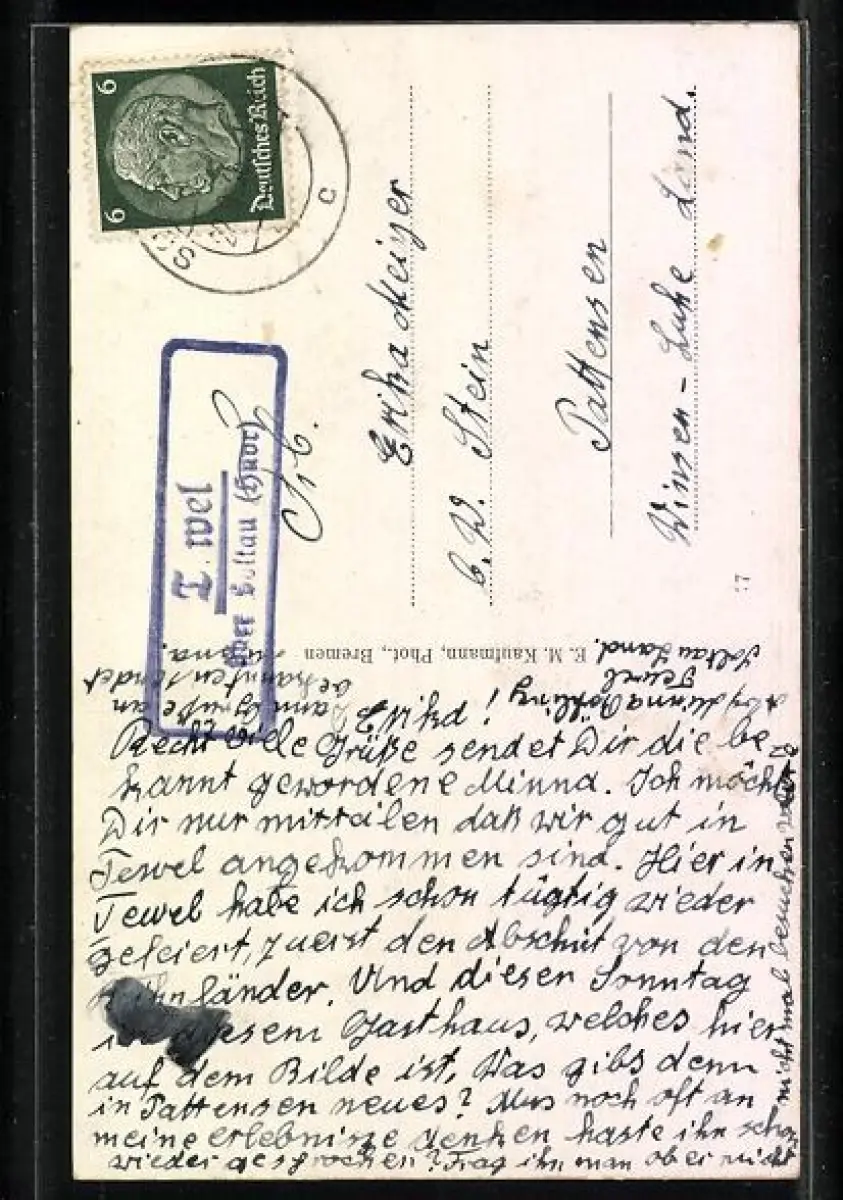 6 6
Deutsches Reich
c
T. wel
über Soltau (Hann)
Frl.
Erika Meiyer
b. W. Stein
Pattensen
Winsen-Luhe Land.
E. M. Kaufmann, Phot., Bremen
17
Erika!
Recht viele Grüße sendet Dir die be
kannt gewordene Minna. Ich möcht
Dir nur mitteilen daß wir gut in
Tewel angekommen sind. Hier in
Tewel habe ich schon tügtig wieder
gefeiert, zuerst den Abschiit von den
länder. Und diesen Sonntag
in diesem Gasthaus, welches hier
auf dem Bilde ist. Was gibs denn
in Pattensen neues? Mus noch oft an
meine erlebnisse denken haste ihn schon
wieder gesprochen? Frag ihn man ob er nicht
nicht mal besuchen
Grüße an
bekannten sendet
Minna
Tewel
Soltau Land.